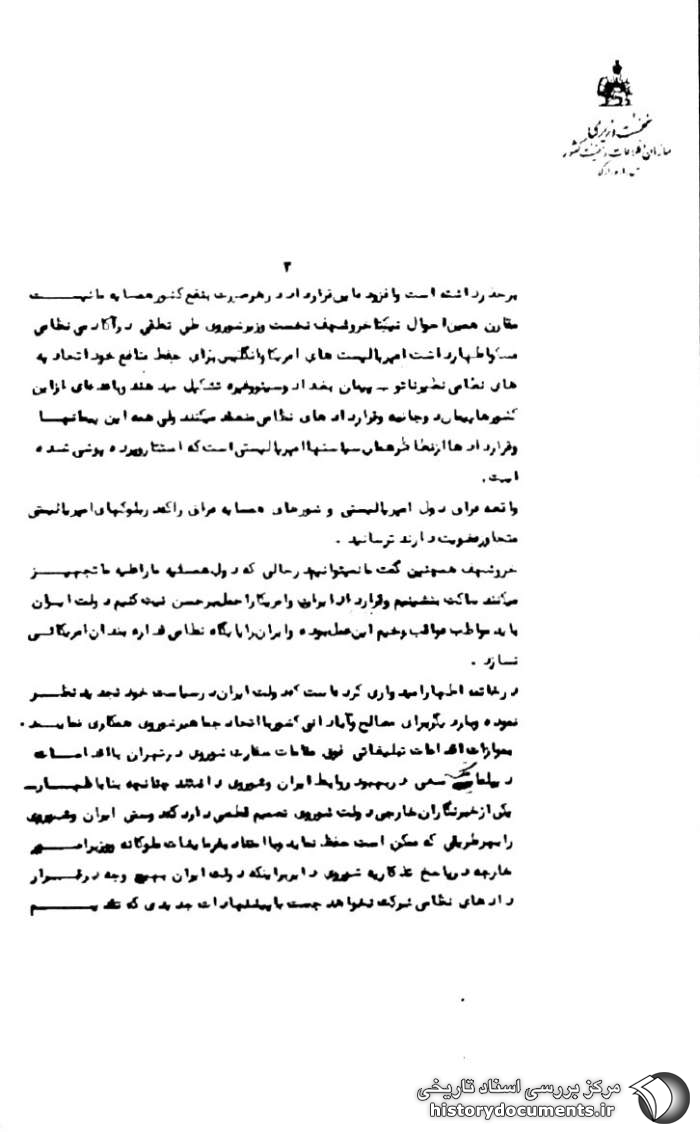 نخست وزیری
سازمان اطلاعات و امنیت کشور
۳
برحذر داشته است و افزود ما این قرارداد در هر صورت بنفع کشور همسایه ما نیست
مقارن همین احوال نیکیتا خروشچف نخست وزیر شوروی طی نطقی در آکادمی نظامی
مسکو اظهار داشت امپریالیست های امریکا وانگلیس برای حفظ منافع خود اتحادیه
های نظامی نظیر ناتو ـ پیمان بغداد و سیتو وغیره تشکیل میدهند و با عده ای از این
کشورها پیمان دوجانبه وقرارداد های نظامی منعقد میکنند ولی همه این پیمانها
وقراردادها از نظر همان سیاستها امپریالیستی است که استتار و پرده پوشی شده
است.
واقعه عراق دول امپریالیستی و کشورهای همسایه عراق را که در بلوکهای امپریالیستی
متجاوز عضویت دارند ترسانید .
خروشچف همچنین گفت ما نمیتوانیم در حالی که دول همسایه ما را علیه ما تجهیز
میکنند ساکت بنشینیم وقرارداد ایران وامریکا را حمل بر حسن نیت کنیم دولت ایران
باید مواظب عواقب وخیم این عمل بوده و ایران را پایگاه نظامی قداره بندان امریکائی
نسازد .
در خاتمه اظهار امیدواری کرده است که دولت ایران در سیاست خود تجدید نظر
نموده و بار دیگر برای مصالح و آبادانی کشور با اتحاد جماهیر شوروی همکاری نماید .
بموازات اقدامات تبلیغاتی فوق مقامات سفارت شوروی در تهران با اقدامات
دیپلماسی سعی در بهبود روابط ایران و شوروی داشتند چنانچه بنا باظهار
یکی از خبرنگاران خارجی دولت شوروی تصمیم قطعی دارد که دوستی ایران و شوروی
را بهر طریقی که ممکن است حفظ نماید و با استناد بفرمایشات ملوکانه و وزیر امور
خارجه در پاسخ تذکاریه شوروی دایر بر اینکه دولت ایران بهیچ وجه در قرار
دادهای نظامی شرکت نخواهد جست با پیشنهادات جدیدی که تقدیم
مرکز بررسی اسناد تاریخی
historydocuments.ir